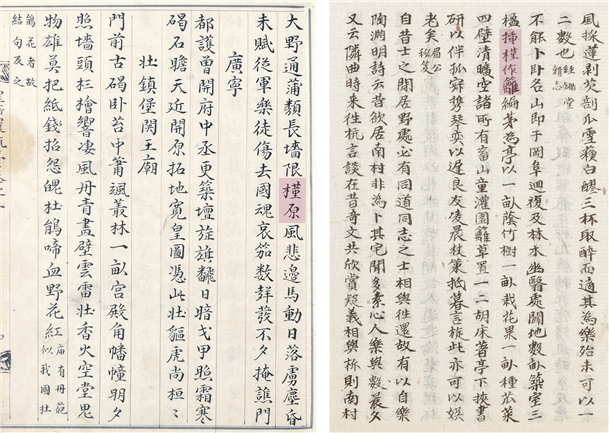 風採蓮剥芡剖瓜雪藕白醪三杯取醉而適其為樂殆未可以一
二數也 經鉏堂雜志
不能卜卧名山即于岡阜迴複及林木幽翳處闢地數畝築室三
楹插槿作籬編茅為亭以一畝蔭竹樹一畝栽花果一畝種苽菜
四壁清曠空諸所有畜山童灌園薙草置一二胡床著亭下挾書
研以伴孤寂攜琴奕以遲良友凌晨杖策抵暮言旋此亦可以娛
老矣 眉公秘笈
自昔士之閒居野處必有同道同志之士相與徃還故有以自樂
陶淵明詩云昔欲居南村非為卜其宅聞多素心人樂與數晨夕
又云隣曲時来徃抗言談在昔奇文共欣賞疑義相與析則南村
大野通蒲類長墻限槿原風悲邊馬動日落虜塵昏
未賦従軍樂徒傷去國魂哀笳數聲發不夕掩譙門
廣寧
都護曽開府中丞更築壇旌旗飜日暗戈甲照霜寒
碣石瞻天近開原拓地寬皇圖憑此壮貙虎尚桓〻
壮鎮堡関王廟
門前古碣卧苔中蕭颯叢林一畝宮殿角幡幢明夕
照墻頭杉檜響凄風丹青畫壁雲雷壮香火空堂鬼
物雄莫把紙錢招怨魄杜鵑啼血野花紅 廟有丹葩似我國杜
鵑花者故結句及之